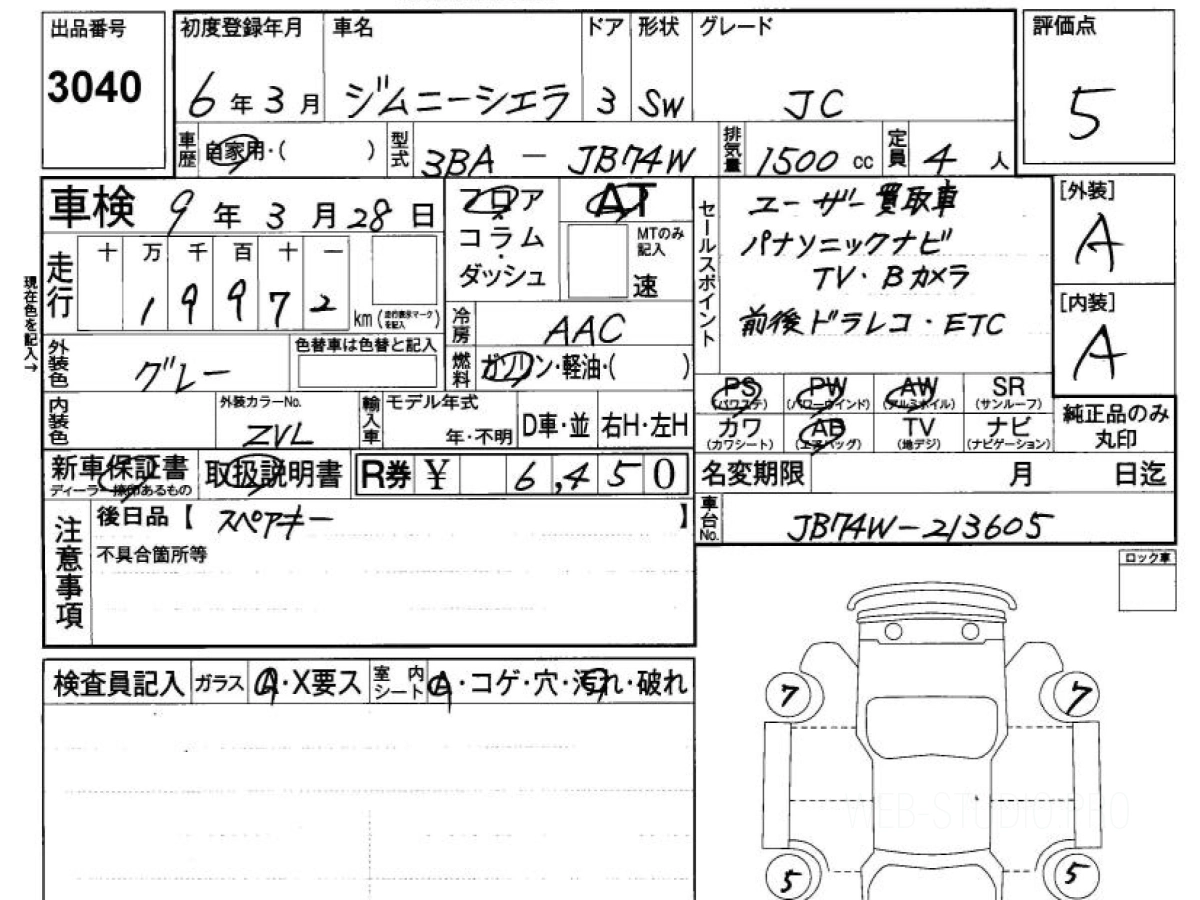 出品番号
3040
初度登録年月
6年3月
車名
ジムニーシエラ
ドア
3
形状
SW
グレード
JC
評価点
5
車歴
自家用・( )
型式
3BA - JB74W
排気量
1500 cc
定員
4人
車検 9年3月28日
フロア
コラム
ダッシュ
AT
MTのみ記入
速
セールスポイント
ユーザー買取車
パナソニックナビ
TV・Bカメラ
前後ドラレコ・ETC
[外装]
A
[内装]
A
現在色を記入→
走行
十 万 千 百 十 一
1 9 9 7 2
km(走行表示マークを記入)
冷房
AAC
燃料
ガソリン・軽油・( )
外装色
グレー
色替車は色替と記入
内装色
外装カラーNo.
ZVL
輸入車
モデル年式
年・不明
D車・並
右H・左H
PS
(パワステ)
PW
(パワーウインド)
AW
(アルミホイル)
SR
(サンルーフ)
カワ
(カワシート)
AB
(エアバッグ)
TV
(地デジ)
ナビ
(ナビゲーション)
純正品のみ
丸印
新車保証書
ディーラー捺印あるもの
取扱説明書
R券 ¥ 6,450
名変期限 月 日迄
車台No.
JB74W-213605
注意事項
後日品【 スペアキー 】
不具合箇所等
ロック車
検査員記入
ガラス
A・X要ス
室内シート
A・コゲ・穴・汚れ・破れ
7
7
5
5
WEB-STUDIO.PRO